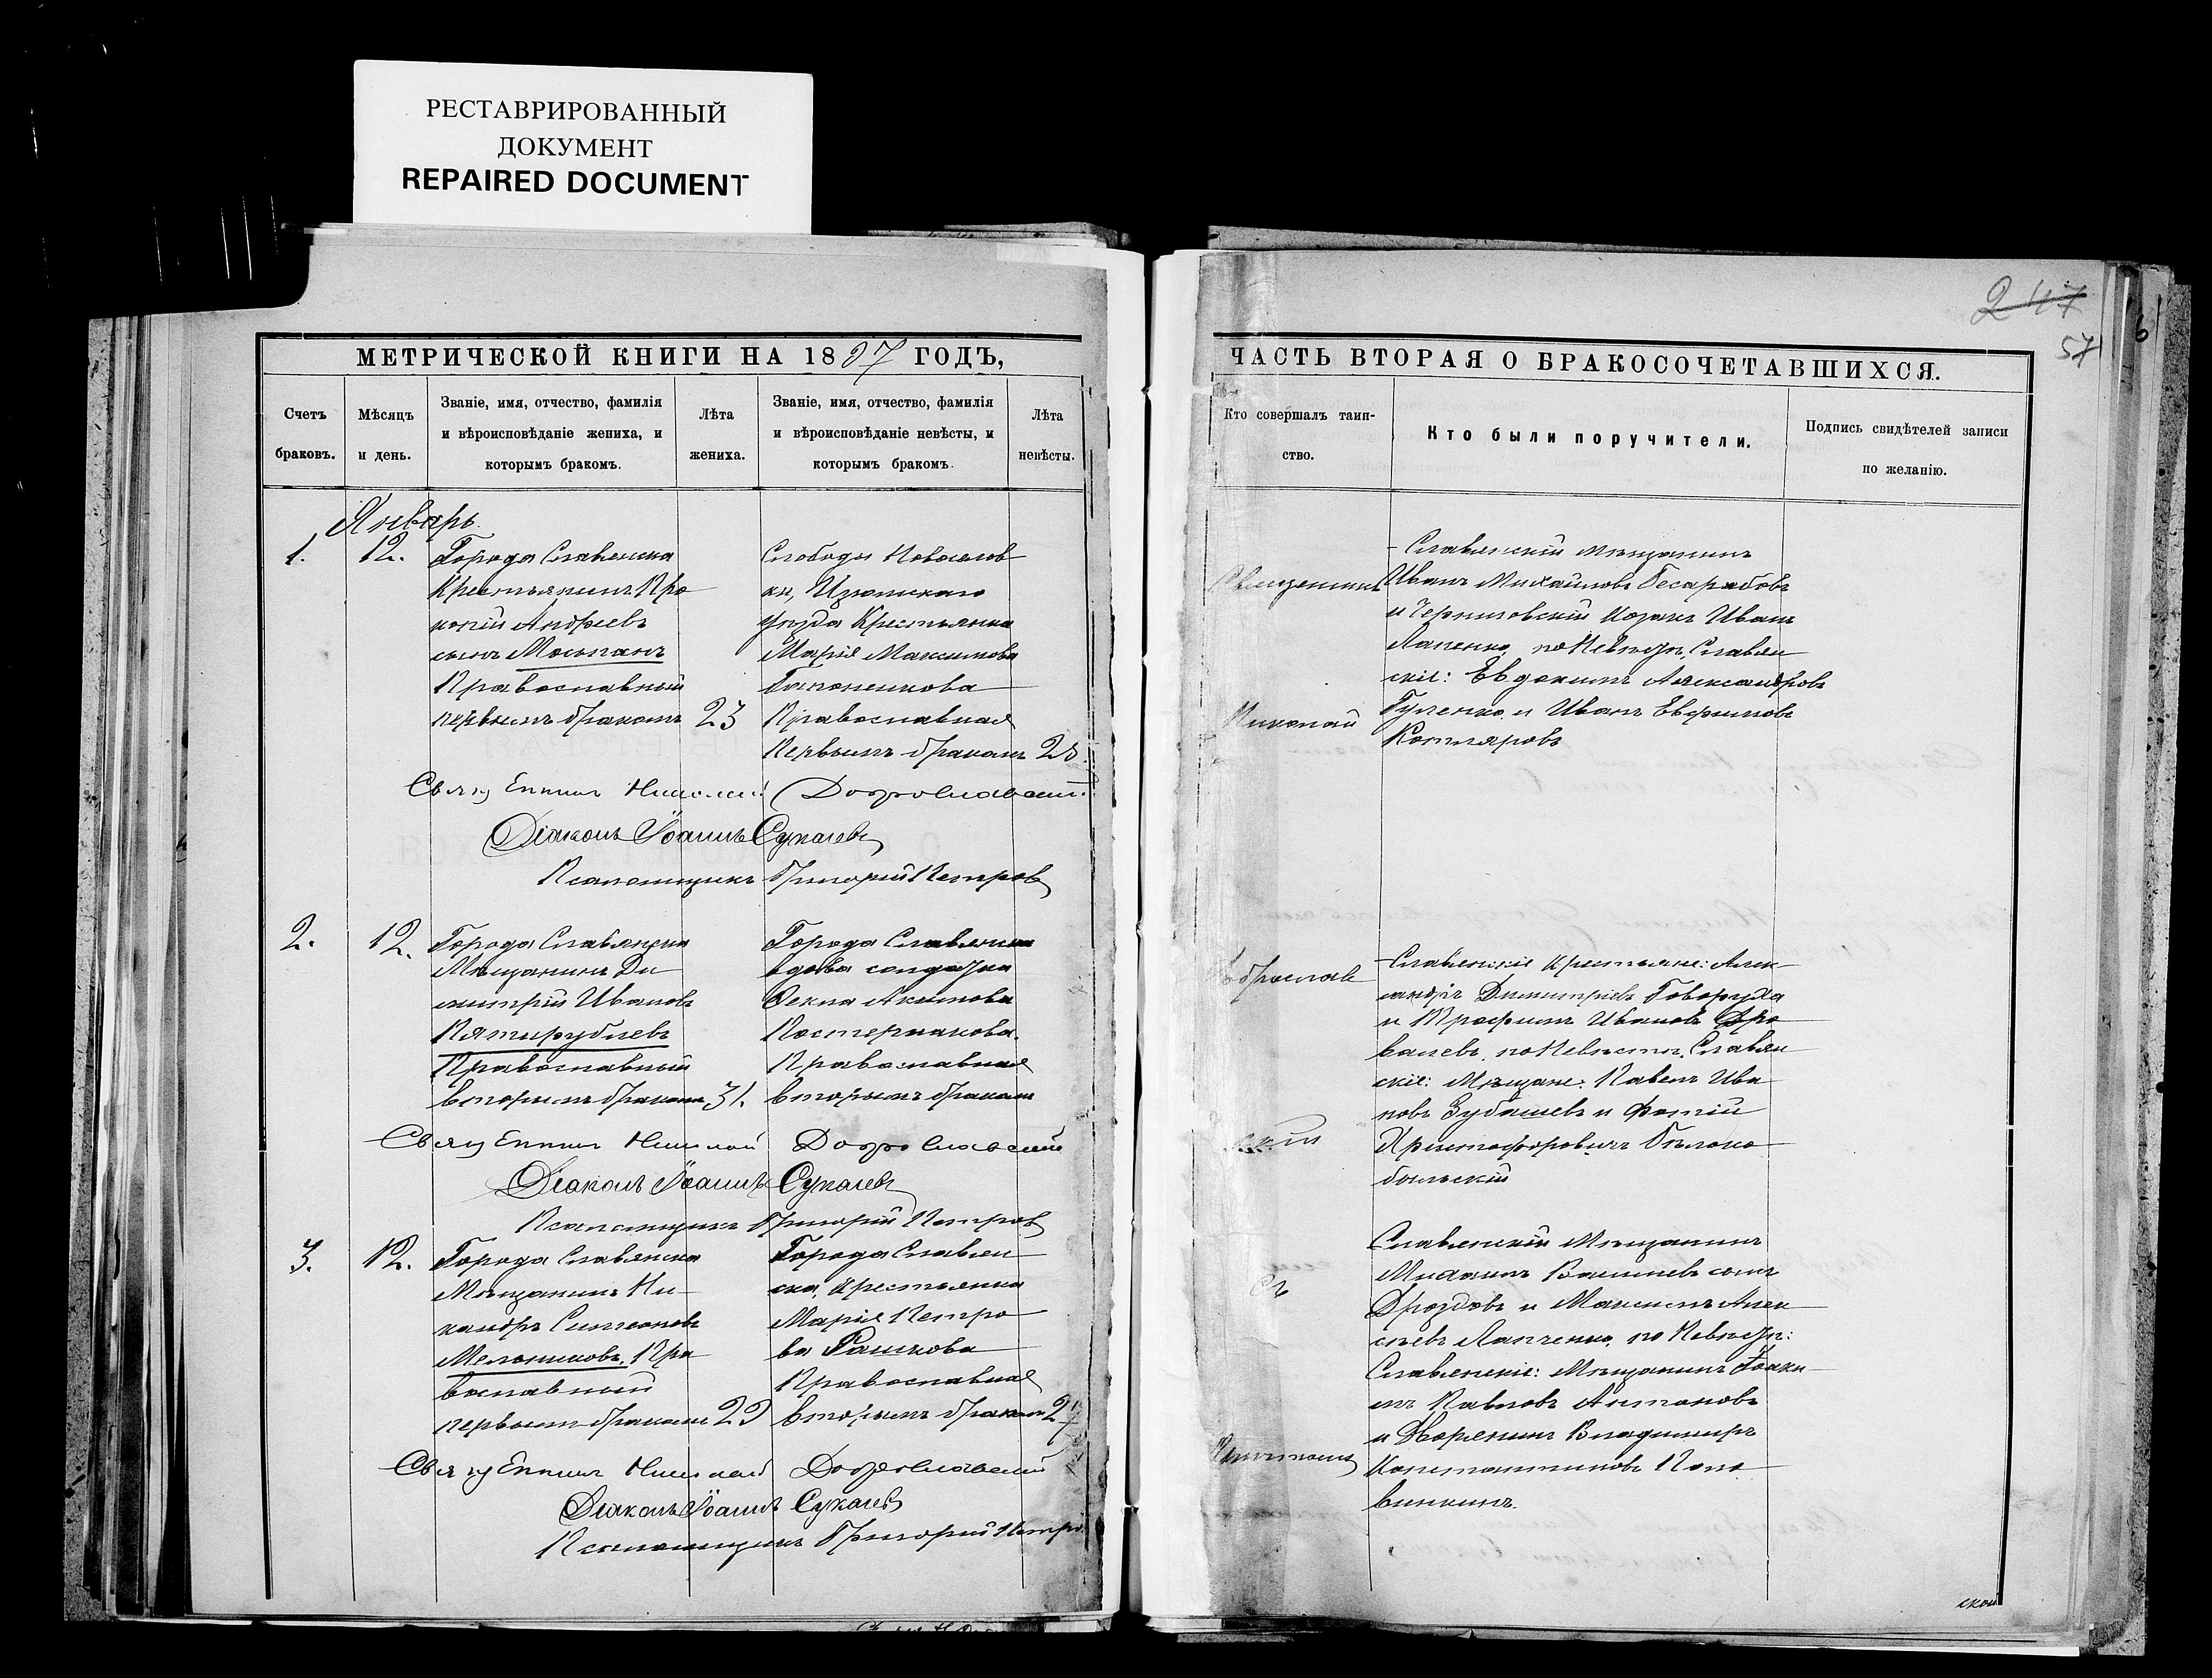 РЕСТАВРИРОВАННЫЙ
ДОКУМЕНТ
REPAIRED DOCUMENT
МЕТРИЧЕСКОЙ КНИГИ НА 1897 ГОДЪ,
Счетъ браковъ.
Мѣсяцъ и день.
Званіе, имя, отчество, фамилія
и вѣроисповѣданіе жениха, и
которымъ бракомъ.
Лѣта жениха.
Званіе, имя, отчество, фамилія
и вѣроисповѣданіе невѣсты, и
которымъ бракомъ.
Лѣта невѣсты.
Январь.
1.
12.
Города Славянска
Крестьянинъ Про
копій Андреевъ
сынъ Мосьпанъ
Православный
первымъ бракомъ
23
Слободы Новоселов
ки, Изюмскаго
уѣзда Крестьянка
Марія Максимова
Православная
Первымъ бракомъ
Священникъ Николай Доброславскій
Діаконъ Іоаннъ Сукачевъ
Псаломщикъ Григорій Петровъ
2.
12.
Города Славянска
Мѣщанинъ Ди
митрій Ивановъ
Пятирублевъ
Православный
вторымъ бракомъ
31.
Города Славянска
вдова солдатка
Фекла Акимова
Постернакова.
Православная
вторымъ бракомъ
Священникъ Николай Доброславскій
Діаконъ Іоаннъ Сукачевъ
Псаломщикъ Григорій Петровъ
3.
12.
Города Славянска
Мѣщанинъ Ни-
кандръ Симеоновъ
Мельниковъ. Пра
вославный
первымъ бракомъ
22
Города Славян
ска, Крестьянка
Марія Петро
ва Рашкова
Православная
вторымъ бракомъ
27
Священникъ Николай Доброславскій
Діаконъ Іоаннъ Сукачевъ
Псаломщикъ Григорій Петро
247
57
6
ЧАСТЬ ВТОРАЯ О БРАКОСОЧЕТАВШИХСЯ.
Кто совершалъ таин-
ство.
Кто были поручители.
Подпись свидѣтелей записи
по желанію.
Священникъ
Николай
Доброслав
скій
съ
- Славянскій мѣщанинъ
Иванъ Михайловъ Бесарабовъ
и Черниговскій козакъ Иванъ
Лапенко, по Невѣстѣ, Славян
скіе: Евдокимъ Александровъ
Гуленко и Иванъ Ефимовъ
Котляровъ
- Славянскіе Крестьяне: Алек
сандръ Димитріевъ Говоруха
и Трофимъ Ивановъ
по Невѣстѣ, Славян
скіе: Мѣщане: Павелъ Ива
новъ Зубашевъ и Фотій
Христофоровичъ Бѣлоко
быльскій
Славянскій Мѣщанинъ
Михаилъ Васильевъ сынъ
Дроздовъ и Максимъ Алек
сѣевъ Лапченко, по Невѣстѣ:
Славянскіе: Мѣщанинъ Іоаки
мъ Павловъ Антоновъ
и Дворянинъ Владимиръ
Константиновъ Поло
винкинъ.